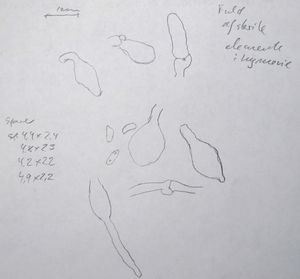 10um
Fuld
af sterile
elementer
i hymeniet
Sporer
4,4 x 2,4
4,8 x 2,3
4,2 x 2,2
4,9 x 2,2